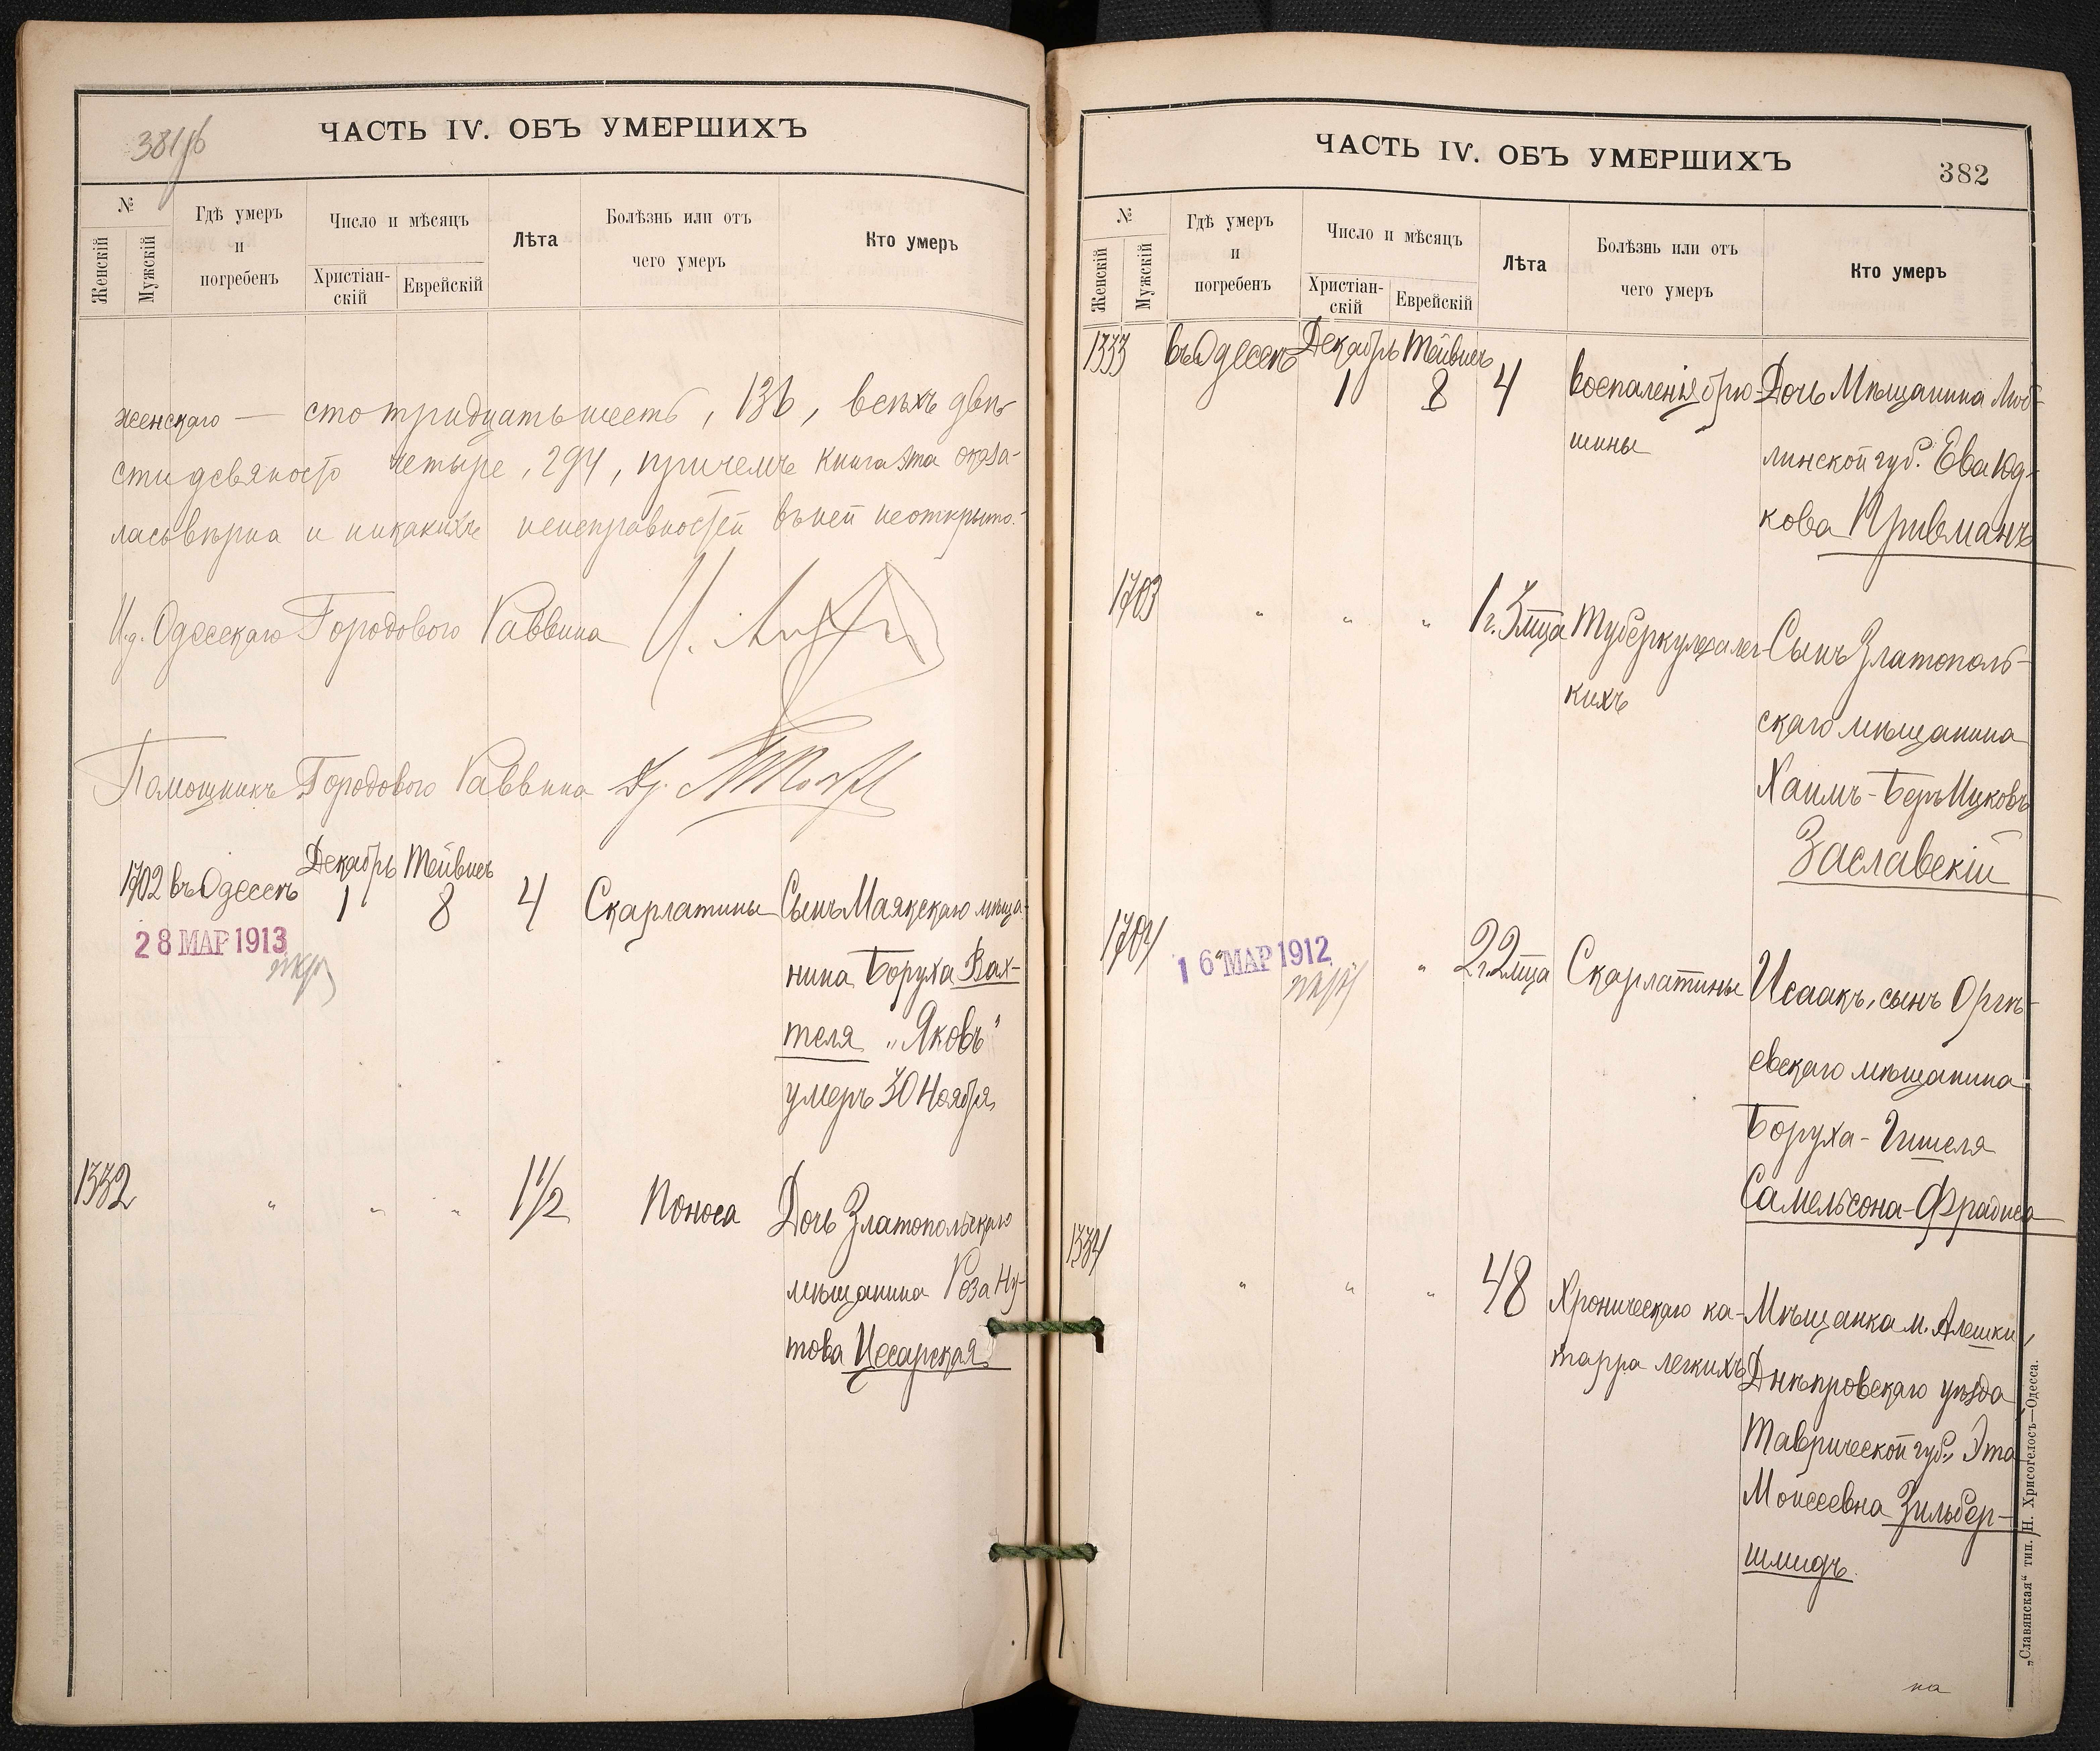 381об
ЧАСТЬ IV. ОБЪ УМЕРШИХЪ
№
Женскій
Мужскій
Гдѣ умеръ
и
погребенъ
Число и мѣсяцъ
Христіан-
скій
Еврейскій
Лѣта
Болѣзнь или отъ
чего умеръ
Кто умеръ
женскаго — сто тридцать шесть, 136, всѣхъ двѣ-
сти девяносто четыре, 294, причемъ книга эта оказа-
лась вѣрна и никакихъ неисправностей въ ней не открыто.
И.д. Одесскаго Городового Раввина
Помощникъ Городового Раввина
1702 въ Одессѣ Декабрь 1 Тейвисъ 8 4 Скарлатины Сынъ Маякскаго мѣща-
нина Боруха Вах-
теля „Яковъ"
умеръ 30 Ноября
28 МАР 1913
1332 " " " 1 1/2 Поноса Дочь Златопольскаго
мѣщанина Роза Ну-
това Цесарская
ЧАСТЬ IV. ОБЪ УМЕРШИХЪ
382
№
Женскій
Мужскій
Гдѣ умеръ
и
погребенъ
Число и мѣсяцъ
Христіан-
скій
Еврейскій
Лѣта
Болѣзнь или отъ
чего умеръ
Кто умеръ
1333 въ Одессѣ Декабрь 1 Тейвисъ 8 4 Воспаленія брю- Дочь Мѣщанина Люб-
шины линской губ. Ева Юд-
кова Привманъ
1703 " " " 1 г. 3 мца Туберкулеза лег- Сынъ Златополь-
кихъ скаго мѣщанина
Хаимъ-Беръ Ицковъ
Заславскій
1704 " " " 2 г. 2 мца Скарлатины Исаакъ, сынъ Оргѣ-
16 МАР 1912
евскаго мѣщанина
Боруха-Гишеля
Самельсона-Фрадиса
1334 " " " 48 Хроническаго ка- Мѣщанка м. Алешки,
тарра легкихъ Днѣпровскаго уѣзда
Таврической губ., Эта
Моисеевна Зильбер-
шмидъ.
на
„Славянская" тип. Н. Хрисогелосъ—Одесса.